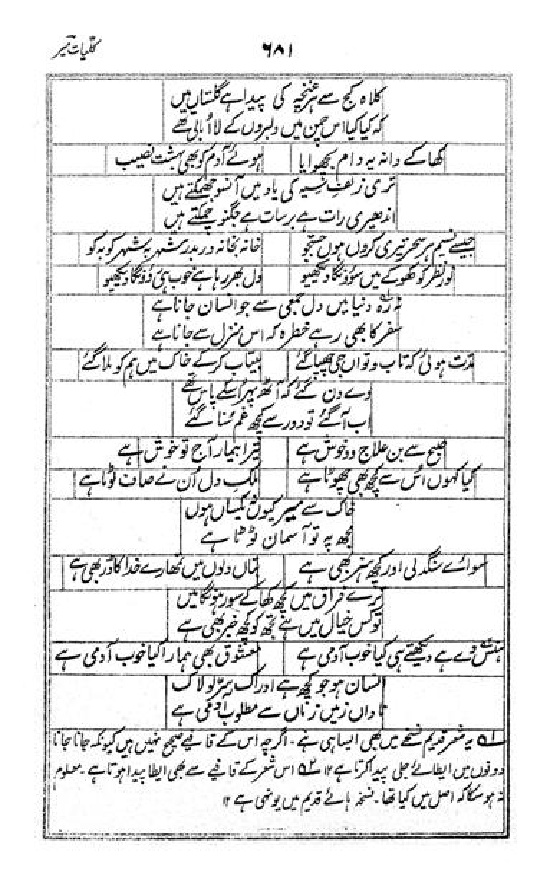 کلیات میر
۶۸۱
کلاہ کج سے ہر غنچہ کی پیدا ہے گلستاں میں
کہ کیا کیا اس چمن میں دلبروں کے لاابالی تھے
کھا کے دانہ یہ دام بچھوایا ہوئے آدم کو بھی بہشت نصیب
تری زلفِ سیہ کی یاد میں آنسو جھمکتے ہیں
اندھیری رات ہے برسات ہے جگنو چمکتے ہیں
جیسے نسیم ہر سحر تیری کروں ہوں جستجو خانہ بخانہ در بدر شہر بہ شہر کو بہ کو
نورِ نظر کو کھو کے میں سوؤں گا دیکھیو دل بھر رہا ہے خوب ہی روؤں گا دیکھیو
رہ دنیا میں دل جمعی سے جو انسان جانا ہے
سفر کا بھی رہے خطرہ کہ اس منزل سے جانا ہے
مدت ہوئی کہ تاب و تواں جی چھپا گئے بیتاب کرکے خاک میں ہم کو ملا گئے
وے دن گئے کہ آٹھ پہر اس کے پاس تھے
اب آگئے تو دور سے کچھ غم سنا گئے
صبح سے بن علاج وہ خوش ہے تیرا بیمار آج تو خوش ہے
کیا کہوں اس سے کچھ بھی چھوٹا ہے ملک دل ان نے صاف لوٹا ہے
خاک سے میر کیوں نہ یکساں ہوں
مجھ پہ تو آسمان ٹوٹا ہے
سوائے سنگدلی اور کچھ ہنر بھی ہے بتاں دلوں میں تمھارے خدا کا ڈر بھی ہے
ترے فراق میں کچھ کھا کے سو رہوں گا میں
تو کس خیال میں ہے تجھ کو کچھ خبر بھی ہے
ہنس دے ہے دیکھتے ہی کیا خوب آدمی ہے معشوق بھی ہمارا کیا خوب آدمی ہے
انسان ہو جو کچھ ہے ادراک سرّ لولاک
ناداں زمیں زماں سے مطلوب آدمی ہے
۵۱ یہ شعر قدیم نسخے میں بھی ایسا ہی ہے۔ اگرچہ اس کے قافیے صحیح نہیں ہیں کیونکہ جانا جانا
دونوں میں ایطائے جلی پیدا کرتا ہے ۱۲ ۵۲ اس شعر کے قافیے سے بھی ایطا پیدا ہوتا ہے۔ معلوم
نہ ہو سکا کہ اصل میں کیا تھا۔ نسخہ ہائے قدیم میں یونہی ہے ۱۲